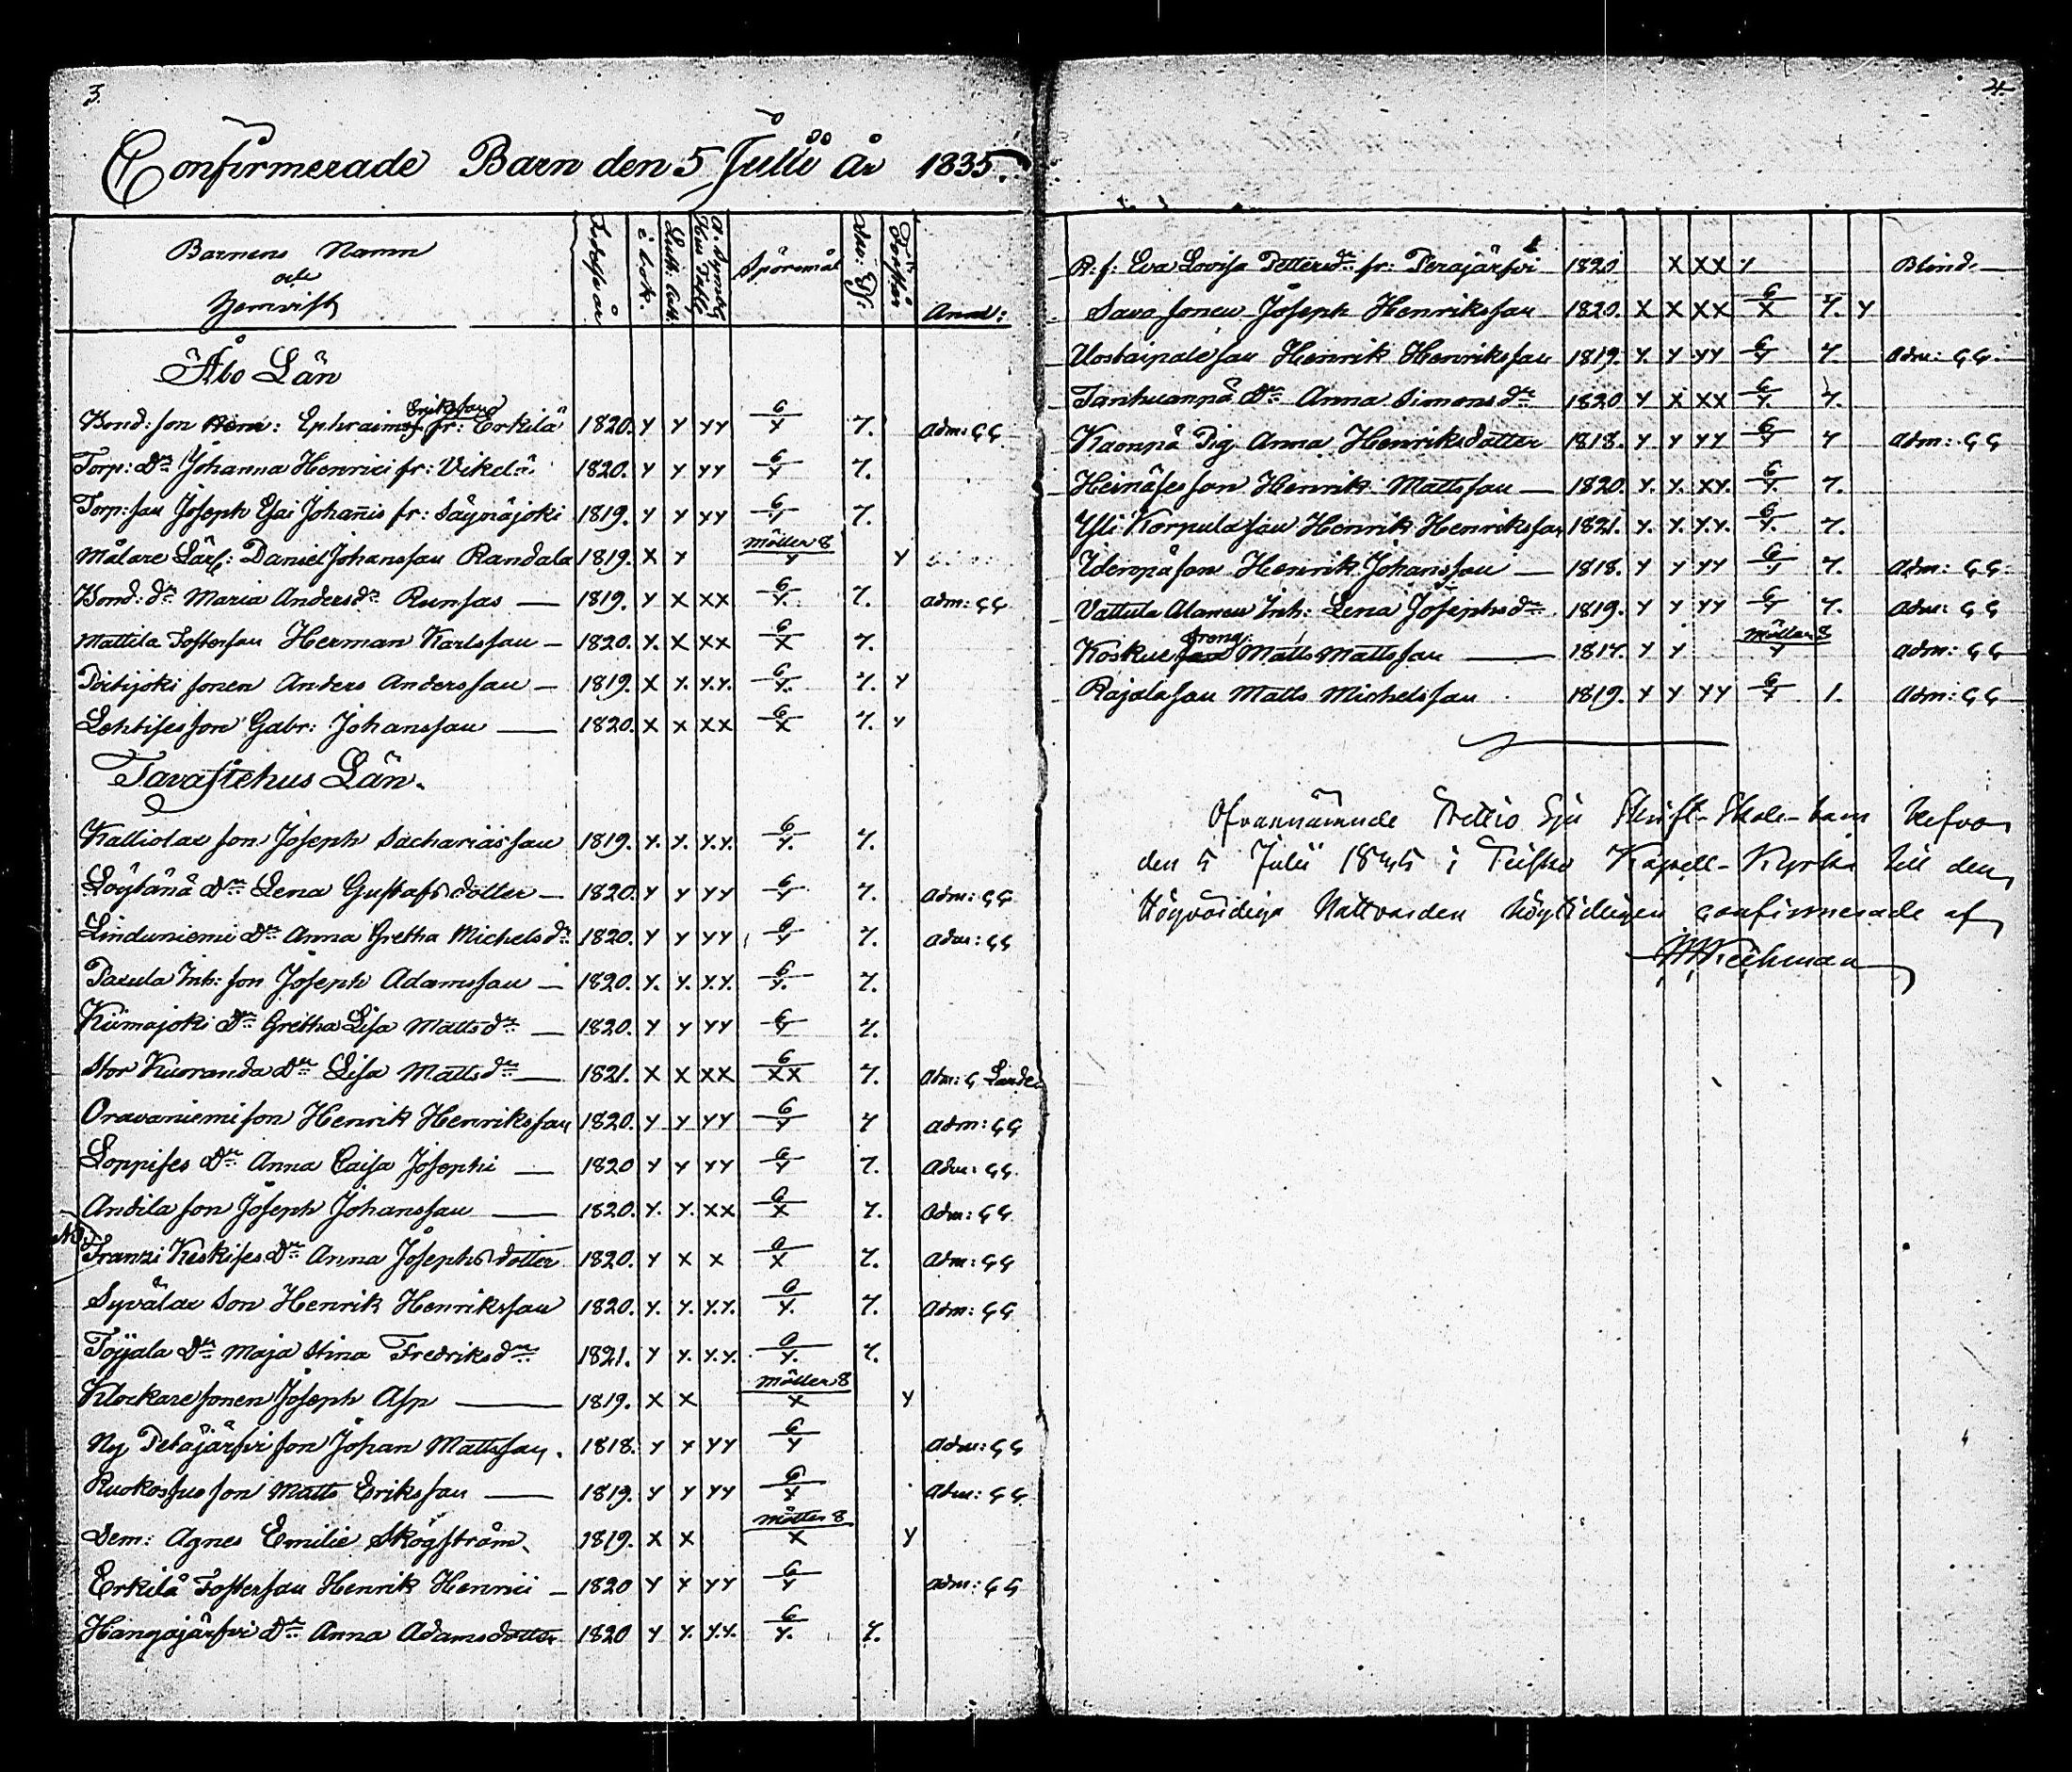 3.
Confirmerade Barn den 5 Julii år 1835.
Barnens Namn
och
Hemvist
Födelseår
i bok.
Luth: Cat:
A. Symb:
Hus Tafl:
Spörsmål
Dav: Ps:
Förstår
Anm:
Åbo Län
Eriksson
Bond: son Ephraim fr: Erkilä 1820. y y yy 6/y 7. Adm: GG
Torp: Dr Johanna Henrici fr: Vikelä 1820. y y yy 6/y 7.
Torp: son Joseph Esai Johannis fr: Säynäjoki 1819. y y yy 6/y 7.
Målare Lärl: Daniel Johansson Randala 1819. x y Möller 8/y y
Bond: dr Maria Andersdr Runsas — 1819. y x xx 6/y. 7. Adm: GG
Mattila Fosterson Herman Karlsson — 1820. y. x xx 6/x 7.
Poitijoki sonen Anders Andersson — 1819. x y. y.y. 6/y. 7. y
Lehtises son Gabr: Johansson — 1820. x x xx 6/x 7. y
Tavastehus Län.
Kalliolax son Joseph Sachariasson 1819. y. y. y.y. 6/y. 7.
Löytänä Dr Lena Gustafsdotter — 1820. y y yy 6/y 7. Adm: GG
Linduniemi Dr Anna Gretha Michelsdr 1820. y y yy 6/y 7. Adm: GG
Paxula Inh: son Joseph Adamsson — 1820. y. y. y.y. 6/y. 7.
Kiimajoki Dr Gretha Lisa Mattsdr — 1820. y y yy 6/y 7.
Stor Kuoranda Dr Lisa Mattsdr — 1821. x x xx 6/xx 7. Adm: G
Oravaniemi son Henrik Henriksson 1820. y y yy 6/y 7 Adm: GG
Loppises Dr Anna Caisa Josephi — 1820 y y yy 6/y 7. Adm: GG.
Andila son Joseph Johansson — 1820. y. y. xx 6/x 7. Adm: GG
NB. Franzi Keskises Dr Anna Josephsdotter 1820. y x x 6/x 7. Adm: GG
Syvälax Son Henrik Henriksson 1820. y. y. y.y. 6/y. 7. Adm: GG
Töyjala Dr Maja Stina Fredriksdr 1821. y y. y.y. 6/y. 7.
Klockare sonen Joseph Asp — 1819. x x Möller 8/x y
Ny Petäjärfvi son Johan Mattsson. 1818. y y yy 6/y Adm: GG
Ruokossuo son Matts Eriksson — 1819. y y yy 6/x Adm: GG
Dem: Agnes Emilie Skogström. 1819. x x Möller 8/x y
Erkilä Fosterson Henrik Henrici — 1820 y y yy 6/y Adm: GG
Hangajärfvi Dr Anna Adamsdotter 1820 y y. y.y. 6/y. 7.
4.
R: f: Eva Lovisa Pettersdr fr: Perajärfvi 1820 x xx y Blind. —
Savo sonen Joseph Henriksson 1820. x x xx 6/x 7. y
son Henrik Henriksson 1819. y. y yy 6/y 7. Adm: GG
Tanhuanpä Dr Anna Simonsdr 1820 y x xx 6/y. 7.
Kaonpä Pig. Anna Henriksdotter 1818. y y yy 6/y 7 Adm: GG
Heinäses son Henrik Mattsson — 1820. y. y. xy. 6/y. 7.
Yli Korpula son Henrik Henriksson 1821. y. y. y.y. 6/y. 7.
Ylenpä son Henrik Johansson — 1818. y y yy 6/y 7. Adm: GG
Vattula Alanen Inh: Lena Josephsdr 1819. y y yy 6/y 7. Adm: GG
dreng
Koskue son Matts Mattsson — 1817. y y Möller 8/y Adm: GG
Rajala son Matts Michelsson 1819. y y yy 6/y 1. Adm: GG
Ofvannämnde Trettio Sju Skrift-Skole-barn blefvo
den 5 Julii 1835 i Teisko Kapell-Kyrka till den
Högvärdiga Nattvarden högtidligen confirmerade af